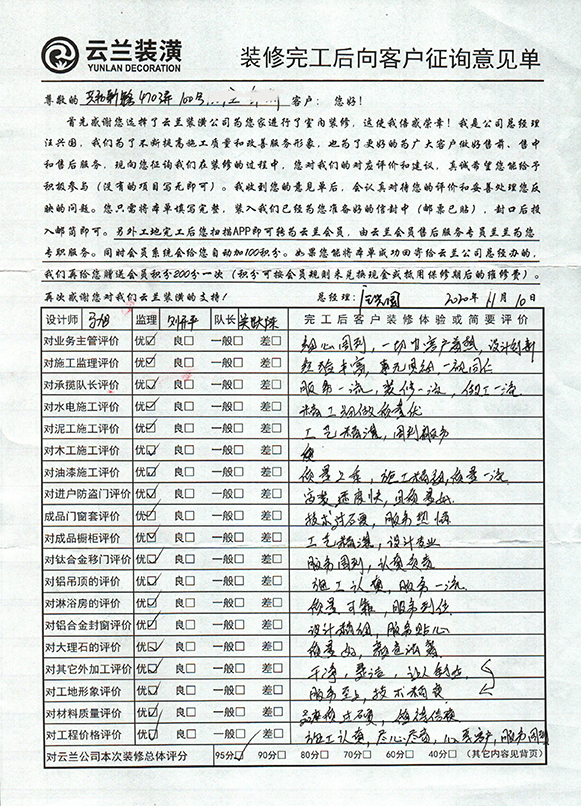 云兰装潢
YUNLAN DECORATION
装修完工后向客户征询意见单
尊敬的 470弄 100号 客户：您好！
首先感谢您选择了云兰装潢公司为您家进行了室内装修，这使我倍感荣幸！我是公司总经理
汪兴国，我们为了不断提高施工质量和改善服务形象，也为了更好的为广大客户做好售前、售中
和售后服务，现向您征询我们在装修的过程中，您对我们的对应评价和建议，真诚希望您能给予
积极参与（没有的项目写无即可）。我收到您的意见单后，会认真对待您的评价和妥善处理您反
映的问题。您只需将本单填写完整，装入我们已经为您准备好的信封中（邮票已贴），封口后投
入邮筒即可。另外工地完工后您扫描APP即可转为云兰会员，由云兰会员售后服务专员兰兰为您
专职服务。同时会员系统会给您自动加100积分。如果您能将本单成功回寄给云兰公司总经办的，
我们再给您赠送会员积分200分一次（积分可按会员规则来兑换现金或抵用保修期后的维修费）。
再次感谢您对我们云兰装潢的支持！ 总经理：汪兴国 2020年 11月 10日
设计师 马旭 监理 刘 平 队长 吴跃陈 完工后客户装修体验或简要评价
对业务主管评价 优☑ 良□ 一般□ 差□ 细心周到，一切为客户着想，设计创新
对施工监理评价 优☑ 良□ 一般□ 差□ 经验丰富，
对承揽队长评价 优☑ 良□ 一般□ 差□ 服务一流，装修一流，做工一流
对水电施工评价 优☑ 良□ 一般□ 差□ 精工细做质量优
对泥工施工评价 优☑ 良□ 一般□ 差□ 工艺精湛，周到服务
对木工施工评价 优☑ 良□ 一般□ 差□
对油漆施工评价 优☑ 良□ 一般□ 差□ 质量上乘，施工精致，质量一流
对进户防盗门评价 优☑ 良□ 一般□ 差□ 安装速度快，且质量好
成品门窗套评价 优☑ 良□ 一般□ 差□ 技术过硬，服务热情
对成品橱柜评价 优☑ 良□ 一般□ 差□ 工艺精湛，设计专业
对钛合金移门评价 优☑ 良□ 一般□ 差□ 服务周到，认真负责
对铝吊顶的评价 优☑ 良□ 一般□ 差□ 施工认真，服务一流
对淋浴房的评价 优☑ 良□ 一般□ 差□ 质量可靠，服务到位
对铝合金封窗评价 优☑ 良□ 一般□ 差□ 设计精细，服务贴心
对大理石的评价 优☑ 良□ 一般□ 差□ 质量好，颜色
对其它外加工评价 优☑ 良□ 一般□ 差□ 干净，整洁，
对工地形象评价 优☑ 良□ 一般□ 差□ 服务至上，技术精良
对材料质量评价 优☑ 良□ 一般□ 差□ 品质过硬，值得信赖
对工程价格评价 优☑ 良□ 一般□ 差□ 施工认真，尽心尽责，服务周到
对云兰公司本次装修总体评分 95分☑ 90分□ 80分□ 70分□ 60分□ 40分□ （其它内容见背页）